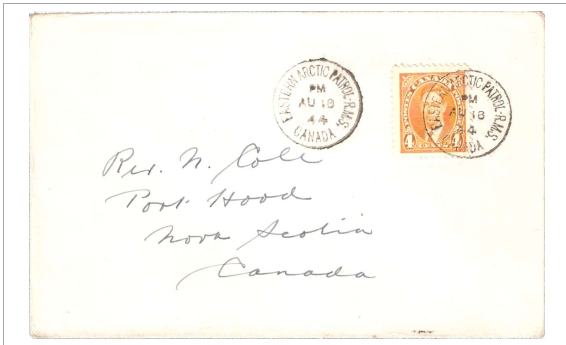 EASTERN ARCTIC PATROL-R.M.S.
PM
AU 18
44
CANADA
ARCTIC PATROL-R.M.S.
PM
AU 18
44
CANADA
4
Rev. N. Cole
Port Hood
Nova Scotia
Canada